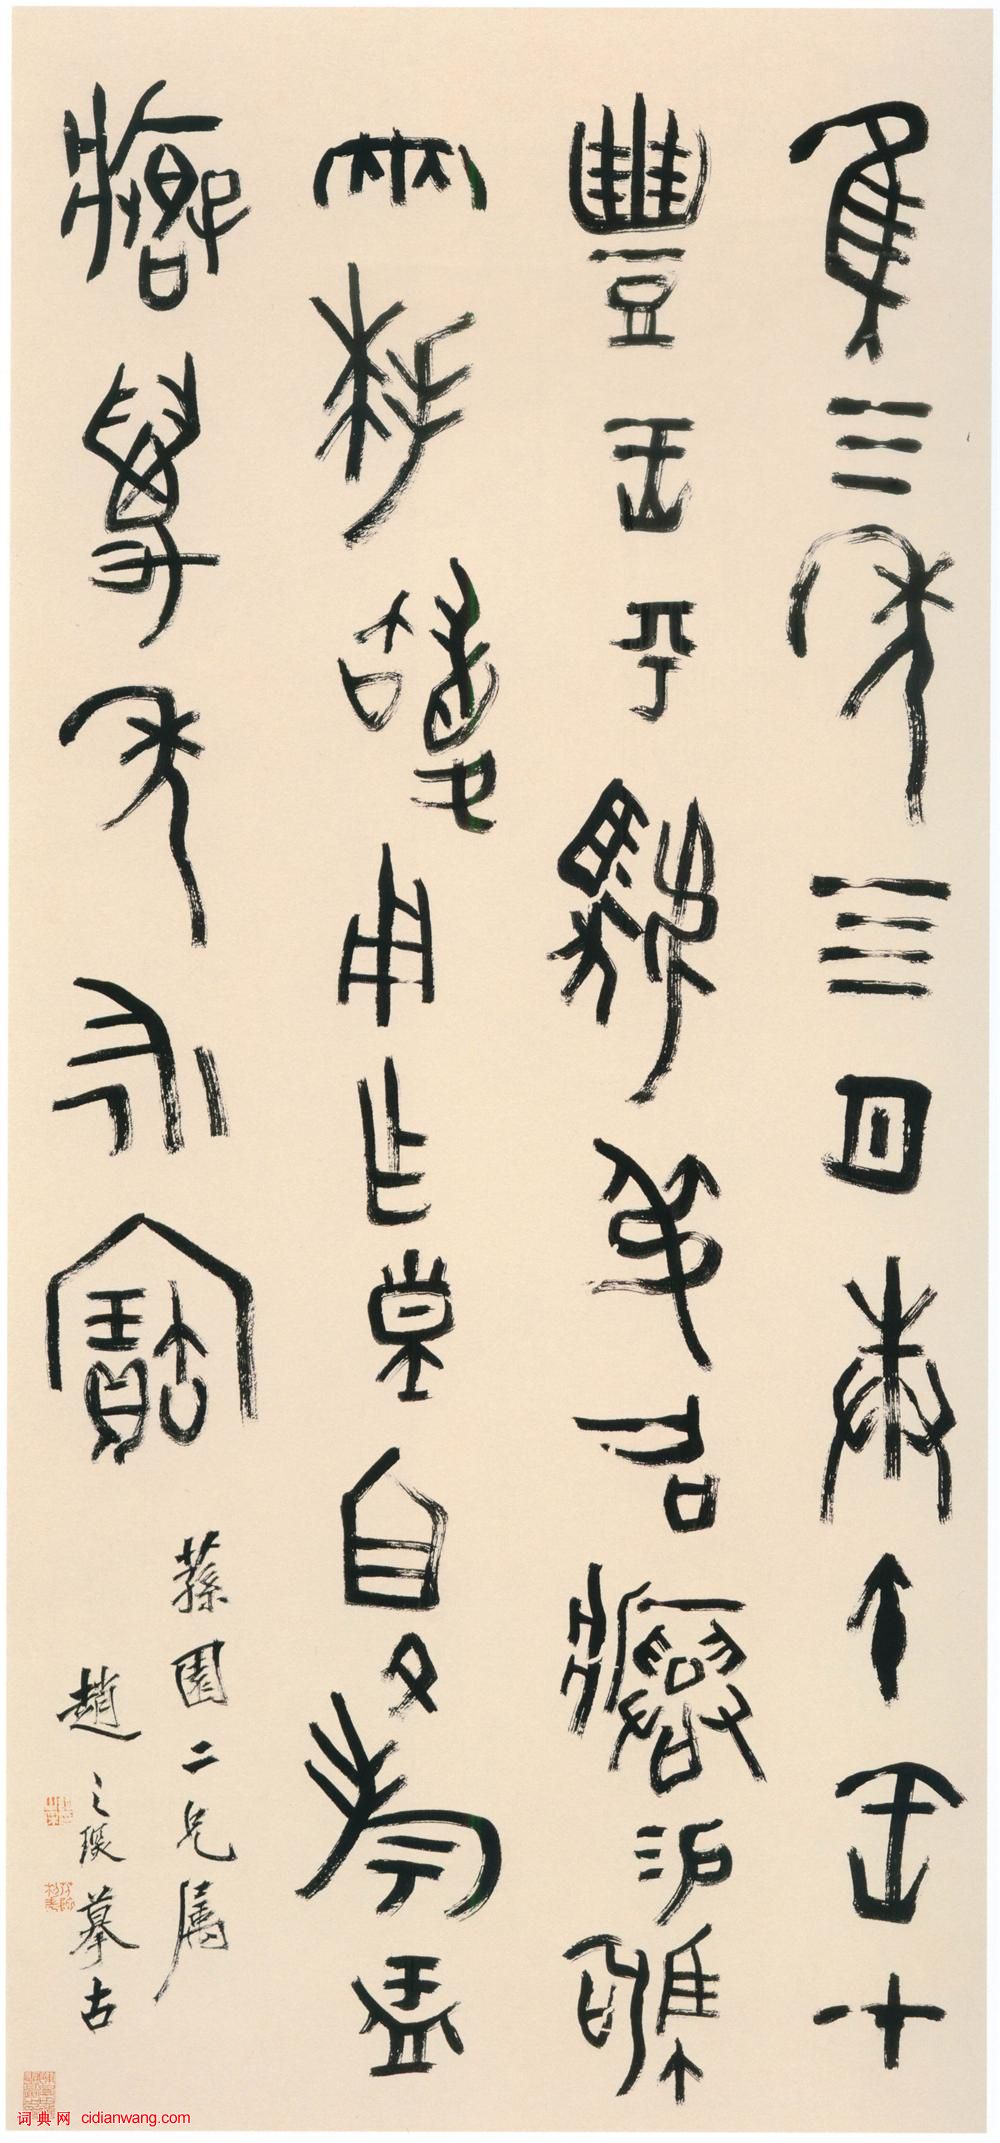 隹三年四月庚午王才
豐王乎虢叔召𤼈易駒
兩拜稽用乍皇且文考盂
𤼈萬年永寶
蓀園二兄屬
趙之琛摹古
词典网 cidianwang.com